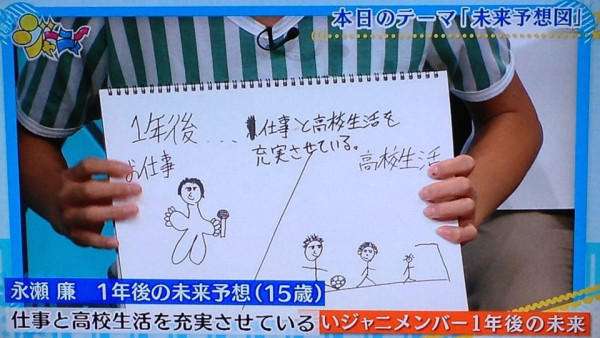 本日のテーマ「未来予想図」
1年後...
仕事と高校生活を
充実させている。
お仕事
高校生活
永瀬 廉 1年後の未来予想(15歳)
仕事と高校生活を充実させている
いジャニメンバー1年後の未来